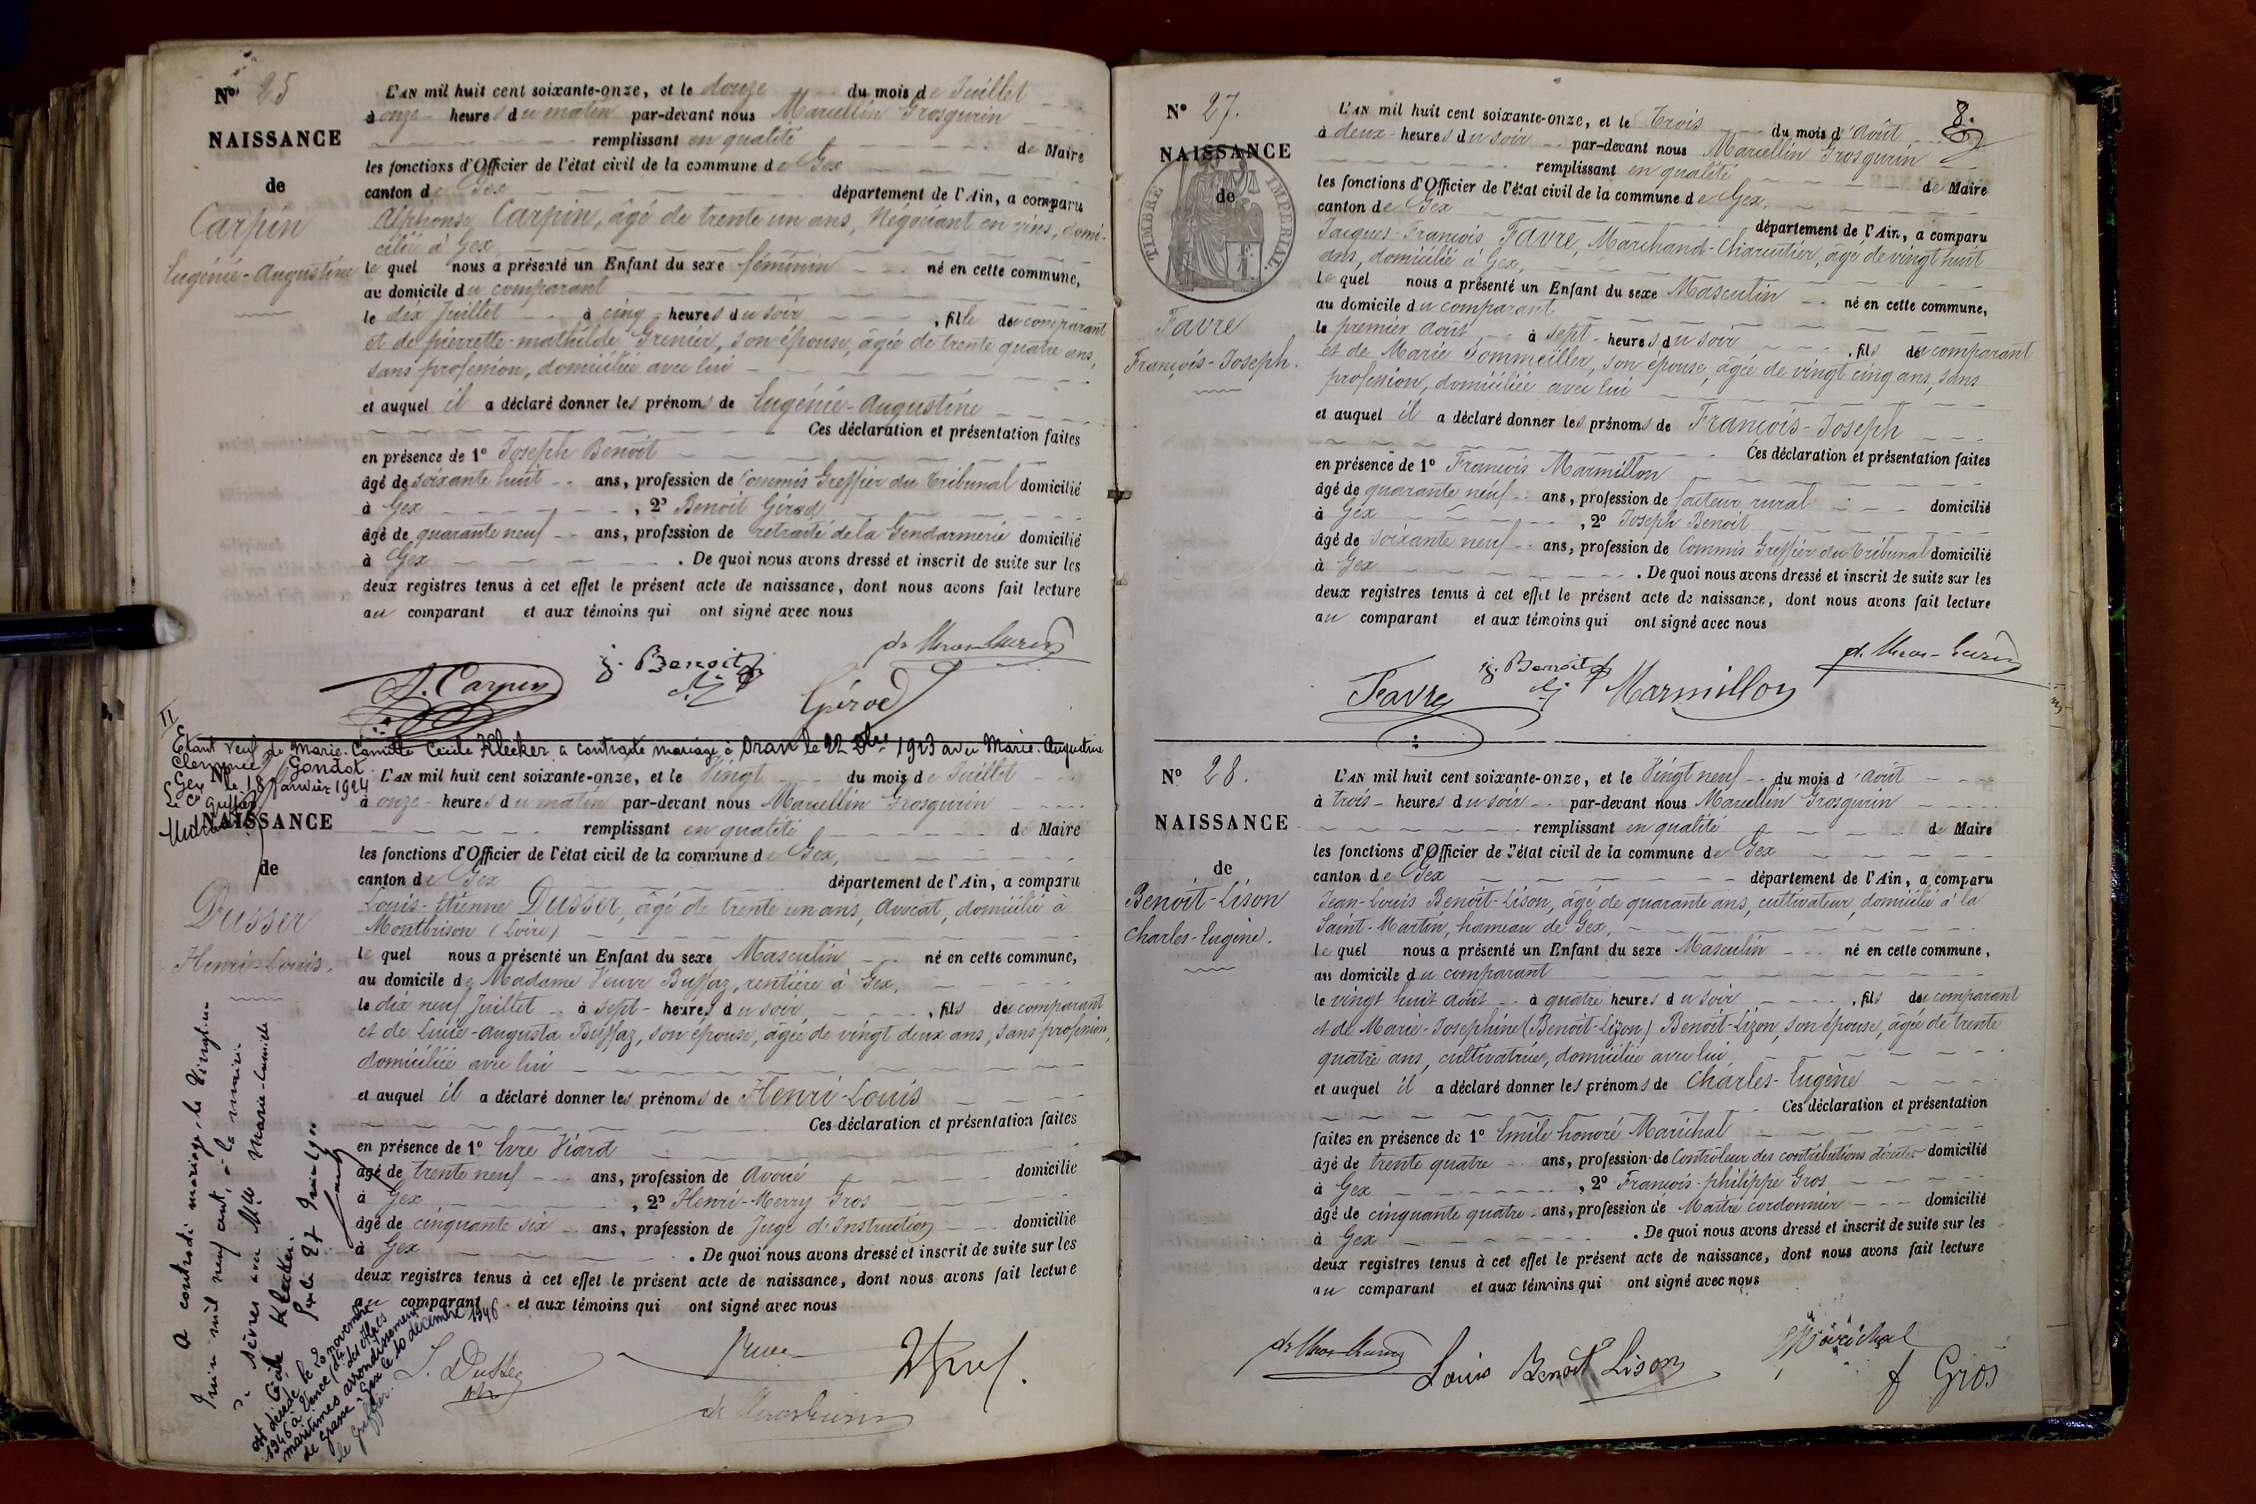 Nº 25
NAISSANCE
de
Carpin
Eugénie-Augustine
L'AN mil huit cent soixante-onze, et le douze du mois de Juillet
à onze heures du matin par-devant nous Marcellin Grosgurin
remplissant en qualité de Maire
les fonctions d'Officier de l'état civil de la commune de Gex
canton de Gex département de l'Ain, a comparu
Alphonse Carpin, âgé de trente un ans, Négociant en vins, domi-
cilié à Gex
le quel nous a présenté un Enfant du sexe féminin né en cette commune,
au domicile du comparant
le dix Juillet à cinq heures du soir, fille du comparant
et de pierrette-mathilde Grenier, son épouse, âgée de trente quatre ans,
sans profession, domiciliée avec lui
et auquel il a déclaré donner les prénoms de Eugénie-Augustine
Ces déclaration et présentation faites
en présence de 1º Joseph Benoit
âgé de soixante huit ans, profession de Commis Greffier du Tribunal domicilié
à Gex, 2º Benoit Gérod
âgé de quarante neuf ans, profession de retraité de la Gendarmerie domicilié
à Gex. De quoi nous avons dressé et inscrit de suite sur les
deux registres tenus à cet effet le présent acte de naissance, dont nous avons fait lecture
au comparant et aux témoins qui ont signé avec nous
A. Carpin
J. Benoit
Gérod
II
Etant veuf de Marie-Camille Cécile Klecker a contracté mariage à Oran le 22 Xbre 1923 avec Marie-Augustine
Clémence Gondot
Gex le 18 Janvier 1924
Nº
NAISSANCE
de
Dusser
Henri-Louis.
L'AN mil huit cent soixante-onze, et le Vingt du mois de Juillet
à onze heures du matin par-devant nous Marcellin Grosgurin
remplissant en qualité de Maire
les fonctions d'Officier de l'état civil de la commune de Gex,
canton de Gex département de l'Ain, a comparu
Louis-Etienne Dusser, âgé de trente un ans, Avocat, domicilié à
Montbrison (Loire)
le quel nous a présenté un Enfant du sexe Masculin né en cette commune,
au domicile de Madame Veuve Buffaz, rentière à Gex,
le dix neuf Juillet à sept heures du soir, fils du comparant
et de Lucie-Augusta Buffaz, son épouse, âgée de vingt deux ans, sans profession,
domiciliée avec lui
et auquel il a déclaré donner les prénoms de Henri-Louis
Ces déclaration et présentation faites
en présence de 1º Viard
âgé de trente neuf ans, profession de Avoué domicilié
à Gex, 2º Henri-Merry Gros
âgé de cinquante six ans, profession de Juge d'Instruction domicilié
à Gex. De quoi nous avons dressé et inscrit de suite sur les
deux registres tenus à cet effet le présent acte de naissance, dont nous avons fait lecture
au comparant et aux témoins qui ont signé avec nous
L. Dusser
A contracté mariage, le Vingt-un
Juin mil neuf cent, à la mairie
de Sèvres avec Mlle Marie-Camille
Cécile Klecker.
est décédé le 20 novembre
1946 à Vence (dt des Alpes
maritimes arrondissement
de Grasse) Gex le 10 décembre 1946
le greffier.
8.
Nº 27.
NAISSANCE
de
TIMBRE IMPERIAL
Favre
François-Joseph.
L'AN mil huit cent soixante-onze, et le Trois du mois d'Août
à deux heures du soir par-devant nous Marcellin Grosgurin
remplissant en qualité de Maire
les fonctions d'Officier de l'état civil de la commune de Gex,
canton de Gex département de l'Ain, a comparu
Jacques-François Favre, Marchand-Charcutier, âgé de vingt huit
ans, domicilié à Gex,
le quel nous a présenté un Enfant du sexe Masculin né en cette commune,
au domicile du comparant
le premier Août à sept heures du soir, fils du comparant
et de Marie Sommeiller, son épouse, âgée de vingt cinq ans, sans
profession, domiciliée avec lui
et auquel il a déclaré donner les prénoms de François-Joseph
Ces déclaration et présentation faites
en présence de 1º François Marmillon
âgé de quarante neuf ans, profession de facteur rural domicilié
à Gex, 2º Joseph Benoit
âgé de soixante neuf ans, profession de Commis Greffier du Tribunal domicilié
à Gex. De quoi nous avons dressé et inscrit de suite sur les
deux registres tenus à cet effet le présent acte de naissance, dont nous avons fait lecture
au comparant et aux témoins qui ont signé avec nous
Favre
J. Benoit
Marmillon
Nº 28.
NAISSANCE
de
Benoit-Lison
Charles-Eugène.
L'AN mil huit cent soixante-onze, et le Vingt neuf du mois d'Août
à trois heures du soir par-devant nous Marcellin Grosgurin
remplissant en qualité de Maire
les fonctions d'Officier de l'état civil de la commune de Gex
canton de Gex département de l'Ain, a comparu
Jean-Louis Benoit-Lison, âgé de quarante ans, cultivateur, domicilié à la
Saint-Martin, hameau de Gex,
le quel nous a présenté un Enfant du sexe Masculin né en cette commune,
au domicile du comparant
le vingt huit août à quatre heures du soir, fils du comparant
et de Marie-Josephine (Benoit-Lizon) Benoit-Lizon, son épouse, âgée de trente
quatre ans, cultivatrice, domiciliée avec lui
et auquel il a déclaré donner les prénoms de Charles-Eugène
Ces déclaration et présentation
faites en présence de 1º Emile honoré Maréchal
âgé de trente quatre ans, profession de Controleur des contributions directes domicilié
à Gex, 2º François-philippe Gros
âgé de cinquante quatre ans, profession de Maître cordonnier domicilié
à Gex. De quoi nous avons dressé et inscrit de suite sur les
deux registres tenus à cet effet le présent acte de naissance, dont nous avons fait lecture
au comparant et aux témoins qui ont signé avec nous
Louis Benoit Lison
Maréchal
f Gros